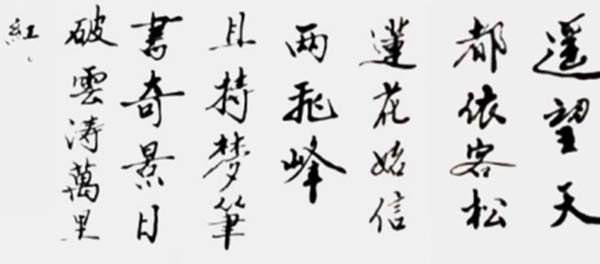 遥望天
都依客松
蓮花始信
兩飛峰
且持梦筆
書奇景日
破雲涛萬里
紅、